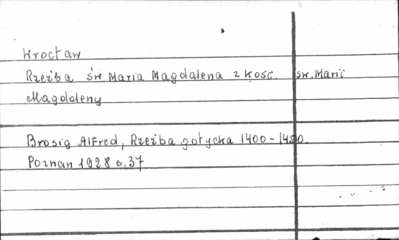 Wrocław
Rzeźba św Maria Magdalena z kość. św. Marii
Magdaleny
Brosig Alfred, Rzeźba gotycka 1400-1450.
Poznan 1928 s.37